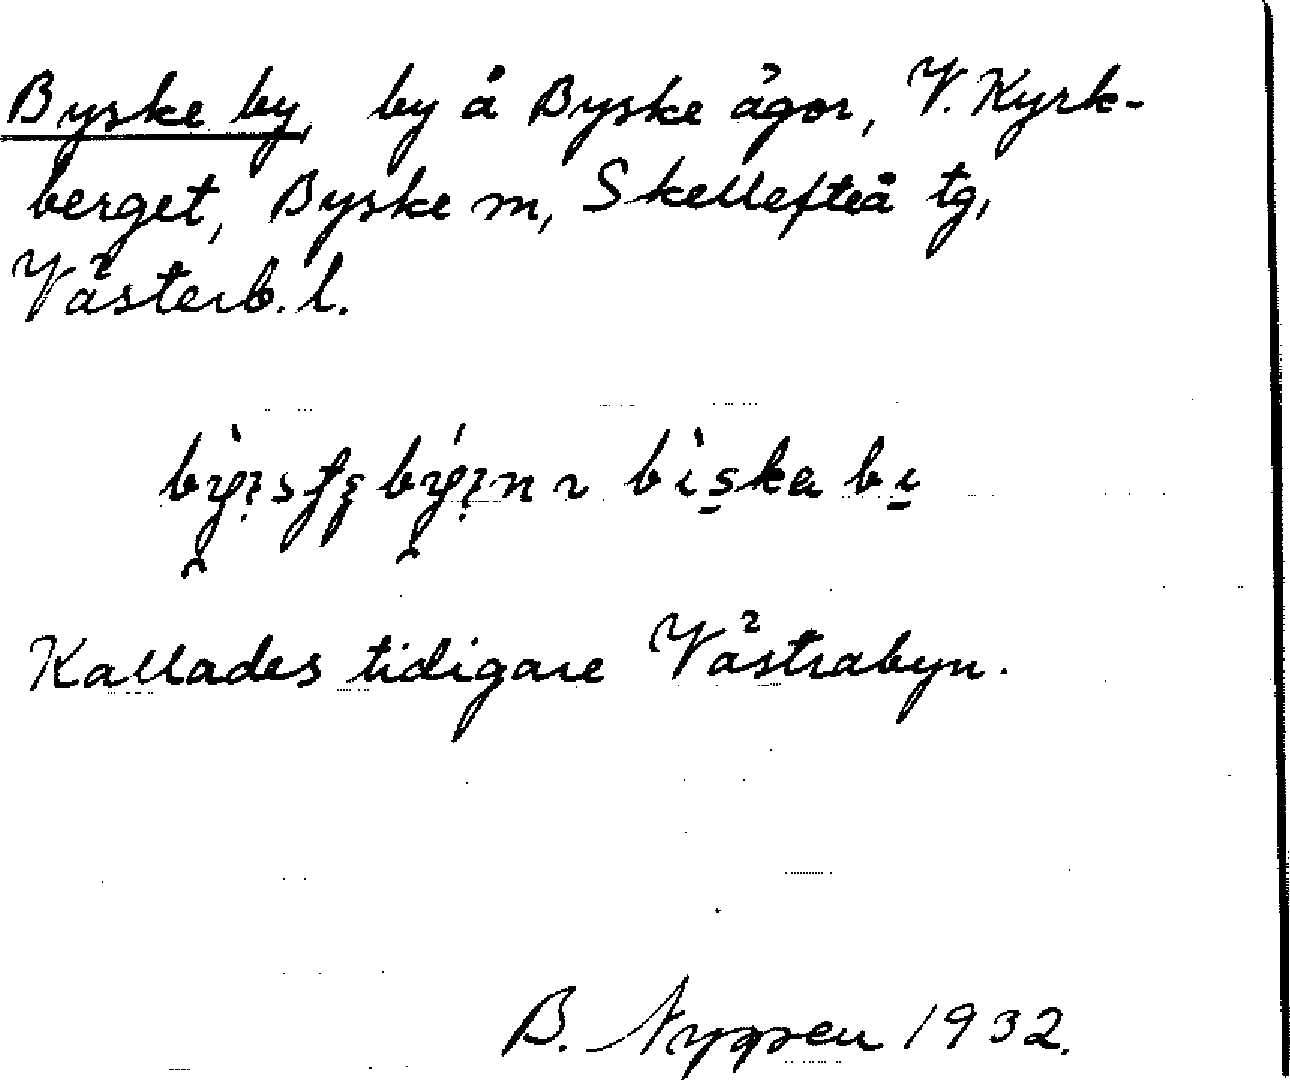 Byske by, by å Byske ägor, V. Kyrk-
berget, Byske m, Skellefteå tg,
Västerb. l.
biska bi
Kallades tidigare Västrabyn.
B. Nygren 1932.